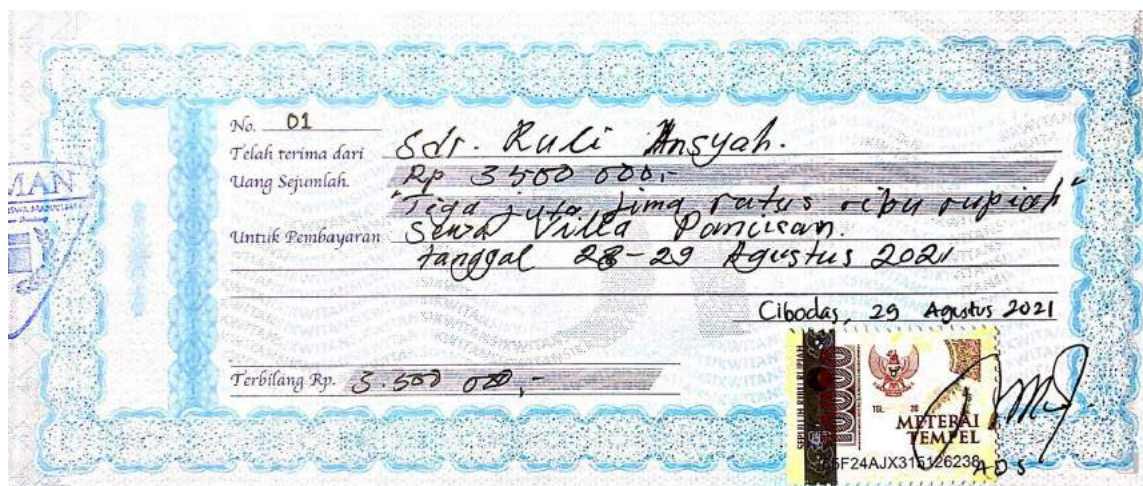 No. 01
Telah terima dari Sdr. Ruli Ansyah.
Uang Sejumlah. Rp 3500 000,-
"Tiga juta lima ratus ribu rupiah"
Untuk Pembayaran Sewa Villa Pancisan.
tanggal 28-29 Agustus 2021
Cibodas, 29 Agustus 2021
Terbilang Rp. 3.500 000,-
10000
TGL. 20
METERAI
TEMPEL
F24AJX315126238
ADS
MAN